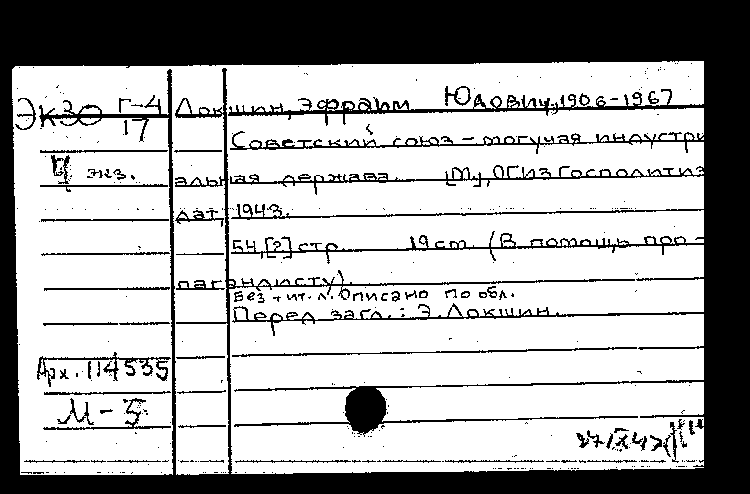 ЭКЗО Г-4 Локшин, Эфраим Юдович, 1906-1967
17
Советский союз - могучая индустри
4 экз. альная держава. [М.], ОГИЗ Госполитиз
дат, 1943.
54,[2] стр. 19 cm (В помощь про-
пагандисту).
Без тит. л. Описано по обл.
Перед загл.: Э. Локшин.
Арх. 114535
М-5